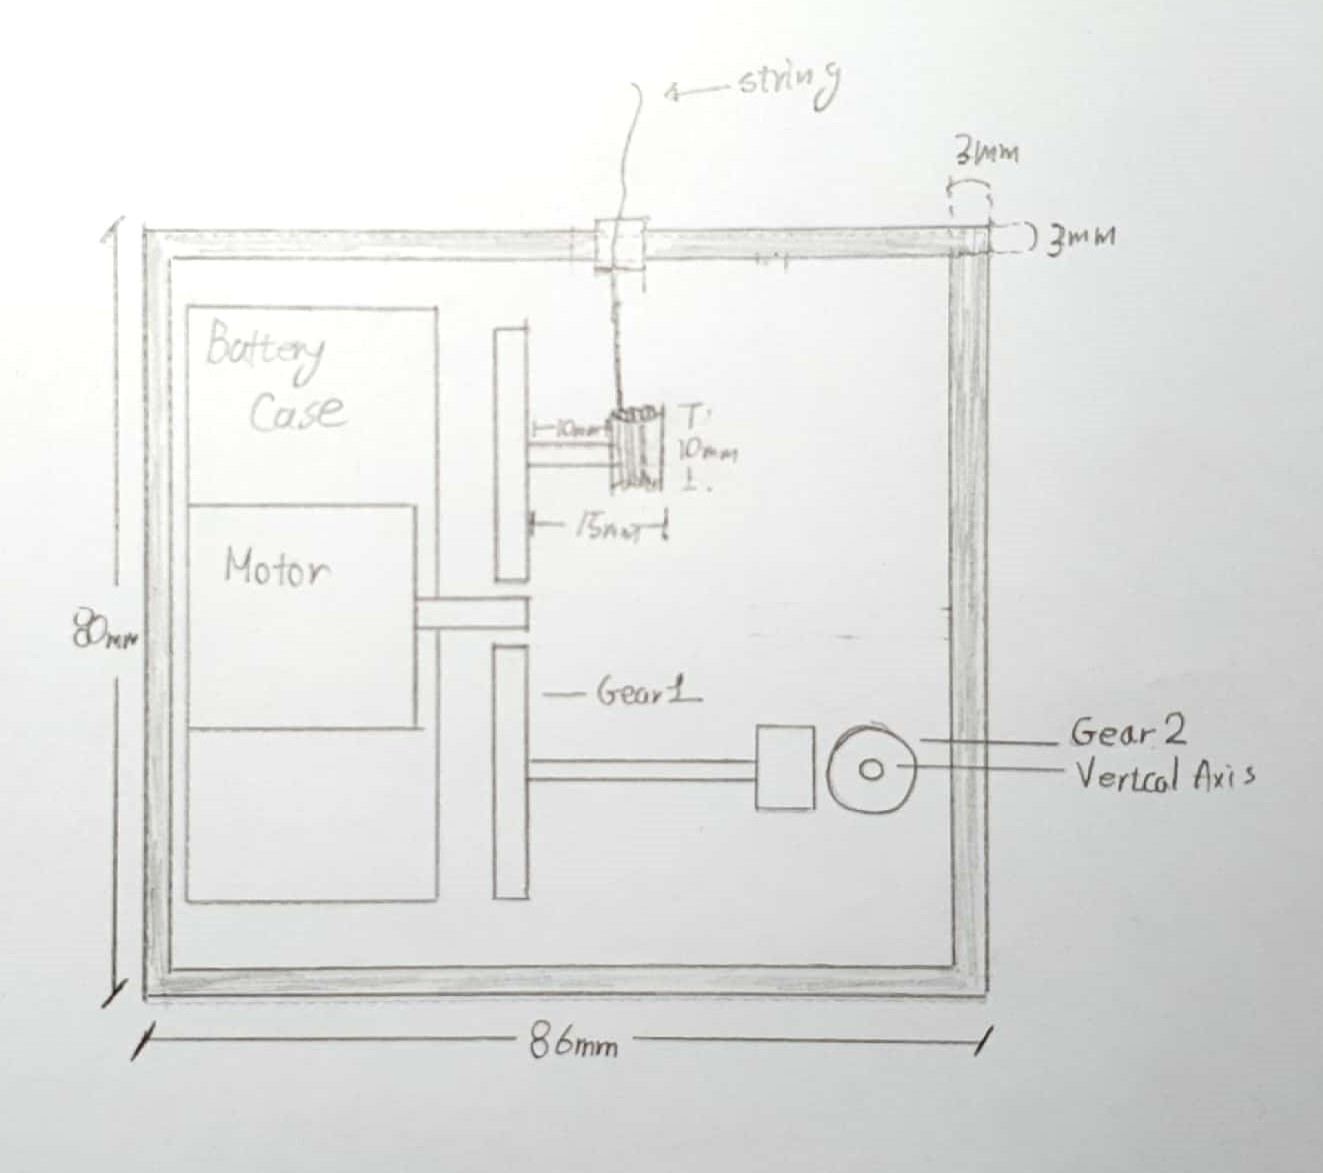 string
3mm
3mm
Battery
Case
10mm
10mm
15mm
Motor
80mm
Gear1
Gear 2
Vertcal Axis
86mm